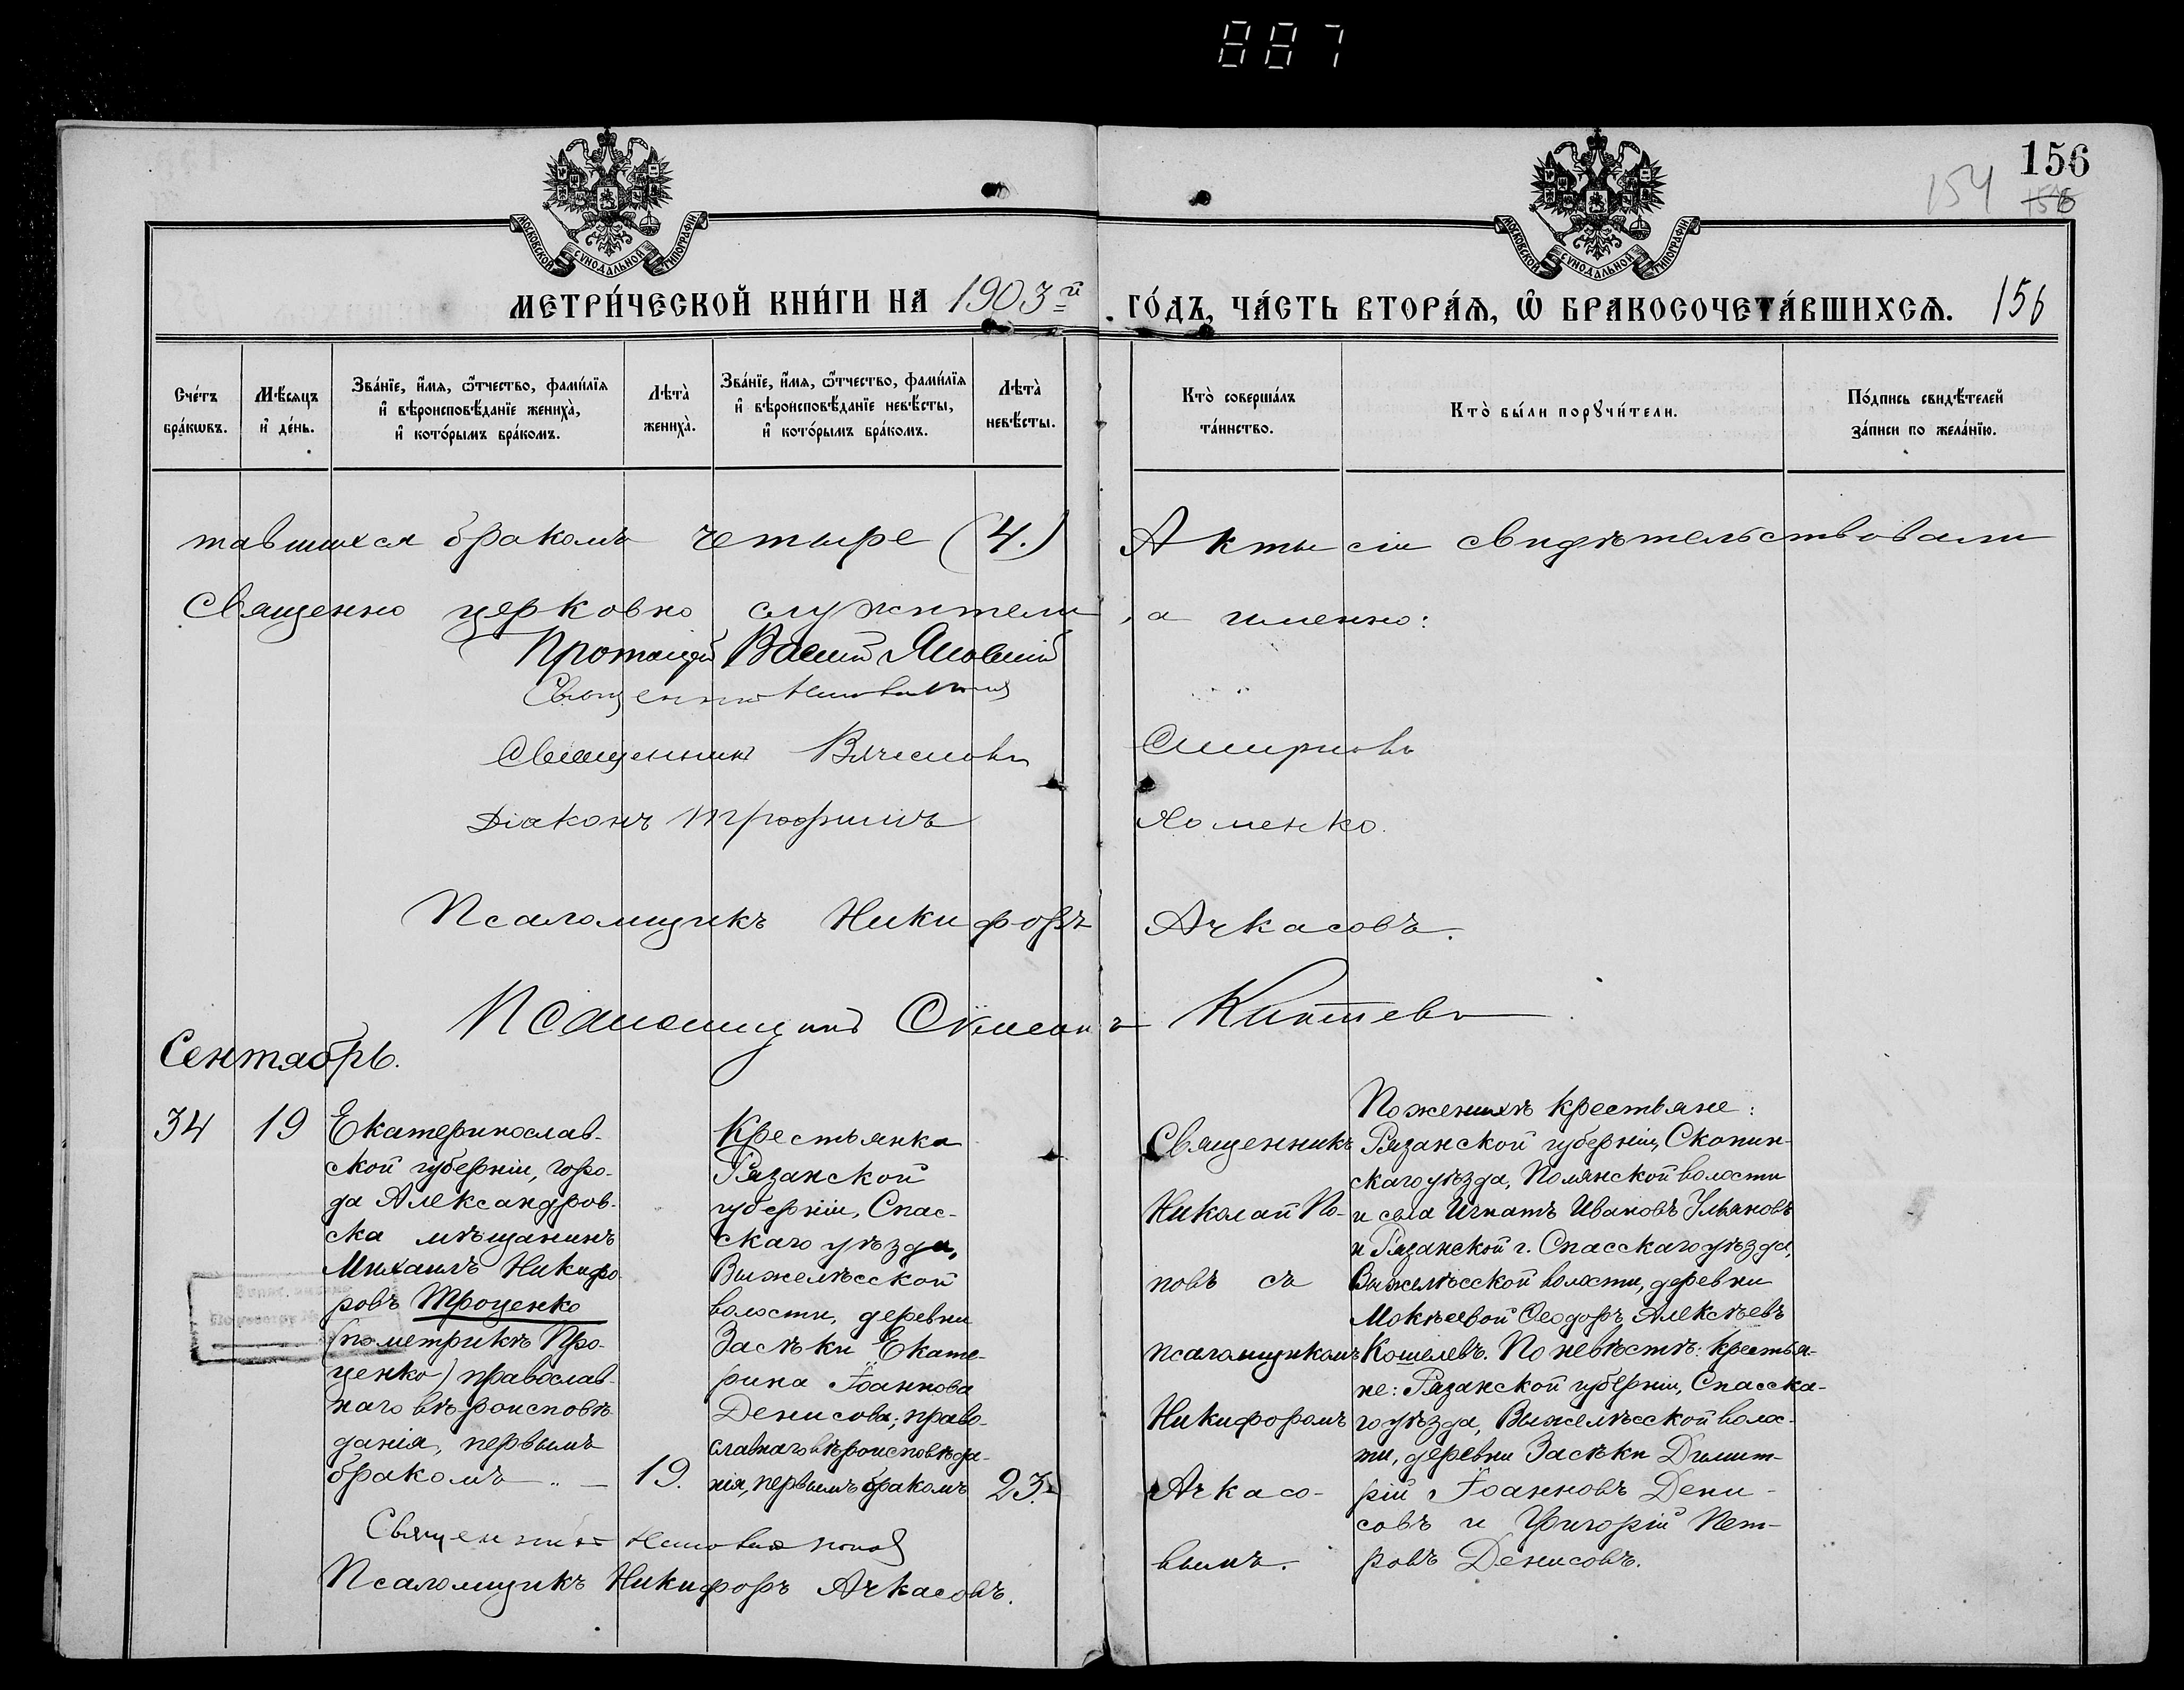 887
156
154
156
МОСКОВСКОЙ СѴНОДАЛЬНОЙ ТИПОГРАФІИ
МОСКОВСКОЙ СѴНОДАЛЬНОЙ ТИПОГРАФІИ
МЕТРИ́ЧЕСКОЙ КНИ́ГИ НА 1903й ГО́ДЪ, ЧА́СТЬ ВТОРА́Ѧ, Ѽ БРАКОСОЧЕТА́ВШИХСѦ. 156
Сче́тъ бра́кѡвъ.
Мѣ́сяцъ и҆ де́нь.
Зва́нїе, и҆́мѧ, ѻ҆́тчество, фами́лїѧ и҆ вѣроисповѣ́данїе жениха̀, и҆ кото́рымъ бра́комъ.
Лѣта̀ жениха̀.
Зва́нїе, и҆́мѧ, ѻ҆́тчество, фами́лїѧ и҆ вѣроисповѣ́данїе невѣ́сты, и҆ кото́рымъ бра́комъ.
Лѣта̀ невѣ́сты.
Кто̀ соверша́лъ та́инство.
Кто̀ бы́ли порꙋчи́тели.
По́дпись свидѣ́телей за́писи по жела́нїю.
тавшихся бракомъ четыре (4.) Акты сіи свидѣтельствовали
Священно церковно служители, а именно:
Протоіерей Василій
Священникъ
Священникъ Вячеславъ Смирновъ
Діаконъ Трофимъ Хоменко.
Псаломщикъ Никифоръ Ачкасовъ.
Псаломщикъ
Сентябрь.
34
19
Екатеринослав-
ской губерніи, горо-
да Александров-
ска мѣщанинъ
Михаилъ Никифо-
ровъ Троценко
(по метрикѣ Про-
ценко) православ-
наго вѣроисповѣ-
данія, первымъ
бракомъ
19.
Крестьянка
Рязанской
губерніи, Спас-
скаго уѣзда,
Выжелѣсской
волости, деревни
Засѣки Екате-
рина Іоаннова
Денисова, право-
славнаго вѣроисповѣда-
нія, первымъ бракомъ
23.
Священникъ
Николай По-
повъ съ
псаломщикомъ
Никифоромъ
Ачкасо-
вымъ.
По женихѣ крестьяне:
Рязанской губерніи, Скопин-
скаго уѣзда, Полянской волости
и села Игнатъ Ивановъ Ульяновъ
и Рязанской г. Спасскаго уѣзда,
Выжелѣсской волости, деревни
Мокѣевой Ѳеодоръ Алексѣевъ
Кошелевъ. По невѣстѣ: крестья-
не: Рязанской губерніи, Спасска-
го уѣзда, Выжелѣсской волос-
ти, деревни Засѣки Димит-
рій Іоанновъ Дени-
совъ и Григорій Пет-
ровъ Денисовъ.
Священникъ Николай Поповъ
Псаломщикъ Никифоръ Ачкасовъ.